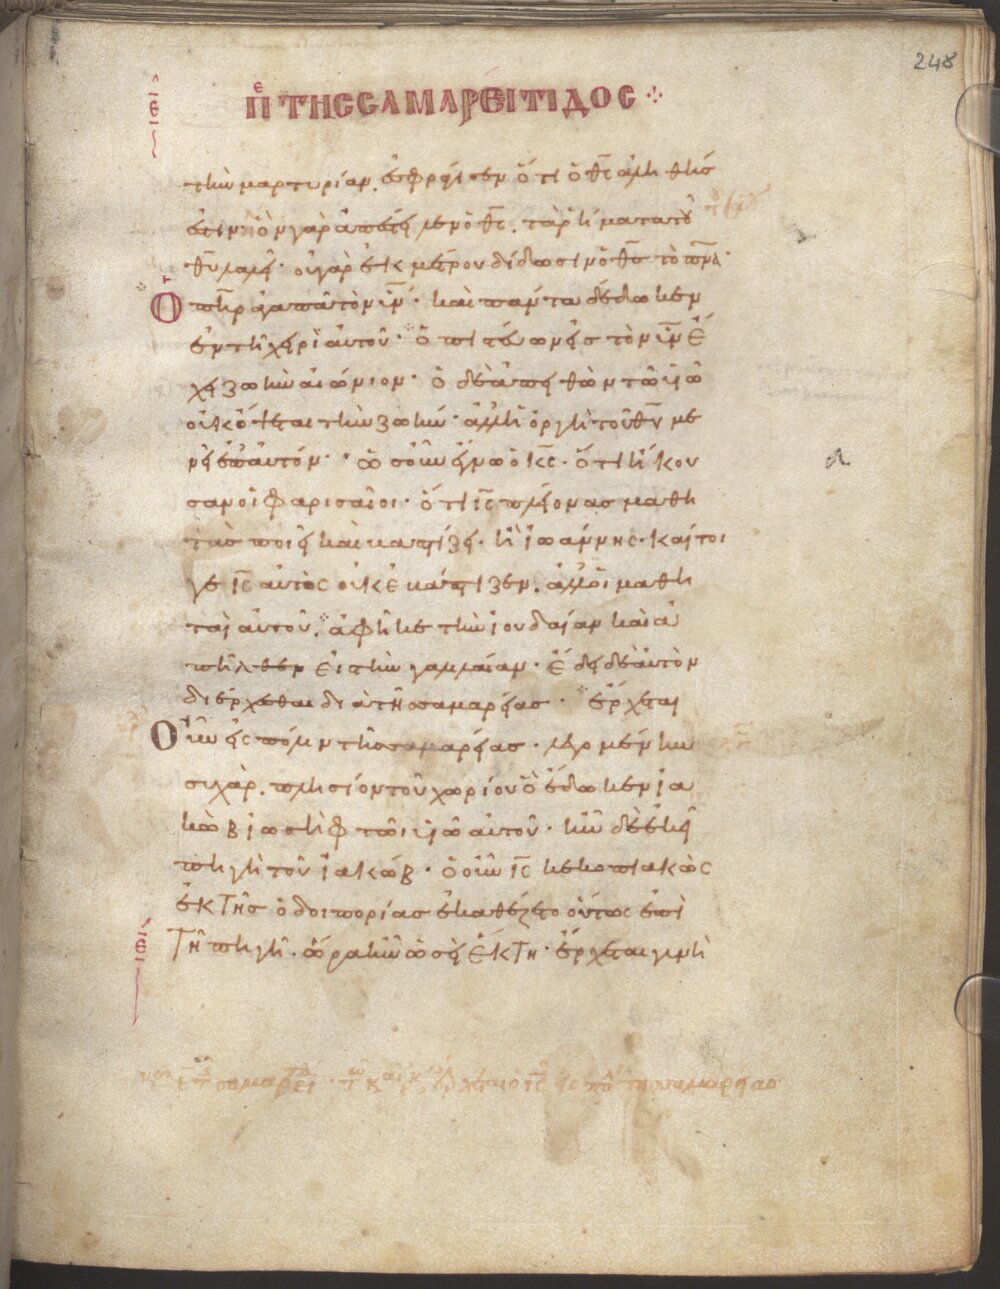 248
ε
Π ΤΗC CΑΜΑΡΕΙΤΙΔΟC
τὴν μαρτυρίαν, ἐσφράγισεν ὅτι ὁ θς ἀληθής
ἐστιν· ὃν γὰρ ἀπέστειλεν ὁ θς. τὰ ρήματα τοῦ
θυ λαλεῖ· οὐ γὰρ ἐκ μέτρου δίδωσιν ὁ θς τὸ πνα·
Ο πηρ ἀγαπᾶ τὸν υν· καὶ πάντα δέδωκεν
ἐν τῆ χειρὶ αὐτοῦ· ὁ πιστεύων εἰς τὸν υν ἔ
χει ζωὴν αἰώνιον· ὁ δὲ ἀπειθῶν τῶ υἱῶ
οὐκ ὄψεται τὴν ζωήν· ἀλλ' ἡ ὀργὴ τοῦ θυ μέ
νει ἐπ' αὐτόν· ὡς οὖν ἔγνω ὁ κς· ὅτι ἤκου
σαν οἱ φαρισαῖοι· ὅτι ις πλείονας μαθη
τὰς ποιεῖ καὶ βαπτίζει· ἢ ἰωάννης· καίτοι
γε ις αὐτὸς οὐκ ἐβάπτιζεν. ἀλλ' οἱ μαθη
ταὶ αὐτοῦ. ἀφῆκε τὴν ἰουδαίαν καὶ ἀ
πῆλθεν εἰς τὴν γαλιλαίαν· ἔδει δὲ αὐτὸν
διέρχεσθαι διὰ τῆς σαμαρείας· ἔρχεται
Οὖν εἰς πόλιν τῆς σαμαρείας· λεγομένην
συχάρ. πλησίον τοῦ χωρίου ὃ ἔδωκεν ἰα
κὼβ ἰωσὴφ τῶ υἱῶ αὐτοῦ· ἦν δὲ ἐκεῖ
πηγὴ τοῦ ἰακώβ· ὁ οὖν ις κεκοπιακὼς
ἐκ τῆς ὁδοιπορίας ἐκαθέζετο οὕτως ἐπὶ
τῆ πηγῆ. ὥρα ἦν ὡσεὶ ἕκτη· ἔρχεται γυνὴ
ις εἰς πο τῆς σαμαρείας